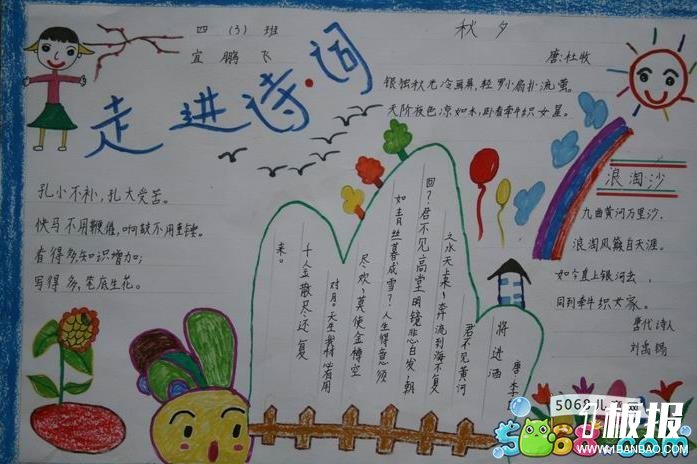 四（3）班
宜鹏飞
走进诗·词
秋夕
唐:杜牧
银烛秋光冷画屏,轻罗小扇扑流萤。
天阶夜色凉如水,卧看牵牛织女星。
孔小不补,孔大受苦。
快马不用鞭催,响鼓不用重锤。
看得多知识增加;
写得多,笔底生花。
将进酒
唐李
君不见黄河
之水天上来~奔流到海不复
回?君不见高堂明镜悲白发~朝
如青丝暮成雪?人生得意须
尽欢~莫使金樽空
对月。天生我材必有用
千金散尽还复
来。
浪淘沙
九曲黄河万里沙,
浪淘风簸自天涯。
如今直上银河去,
同到牵牛织女家。
唐代诗人
刘禹锡
5068儿童网
5068.com
板报
WWW.1BANBAO.COM